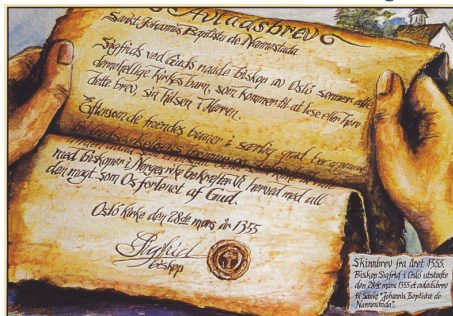 Avladsbrev
Sankt Johannis Baptista de Nannestada
Sigfrids ved Guds naade biskop av Oslo sonner alle
denne hellige kirkes barn, som kommer til at lese eller høre
dette brev, sin hilsen i Herren.
Eftersom de troendes bønner i særlig grad
med biskoper i Norges rike bekrefter Vi herved med all
den magt som Os forlenet af Gud.
Oslo kirke den 28de mars år 1355
Sigfrid
biskop
Skinnbrev fra året 1355.
Biskop Sigfrid i Oslo utstedte
den 28de mars 1355 et avladsbrev
til Sankt "Johannis Baptista de
Nannestada".